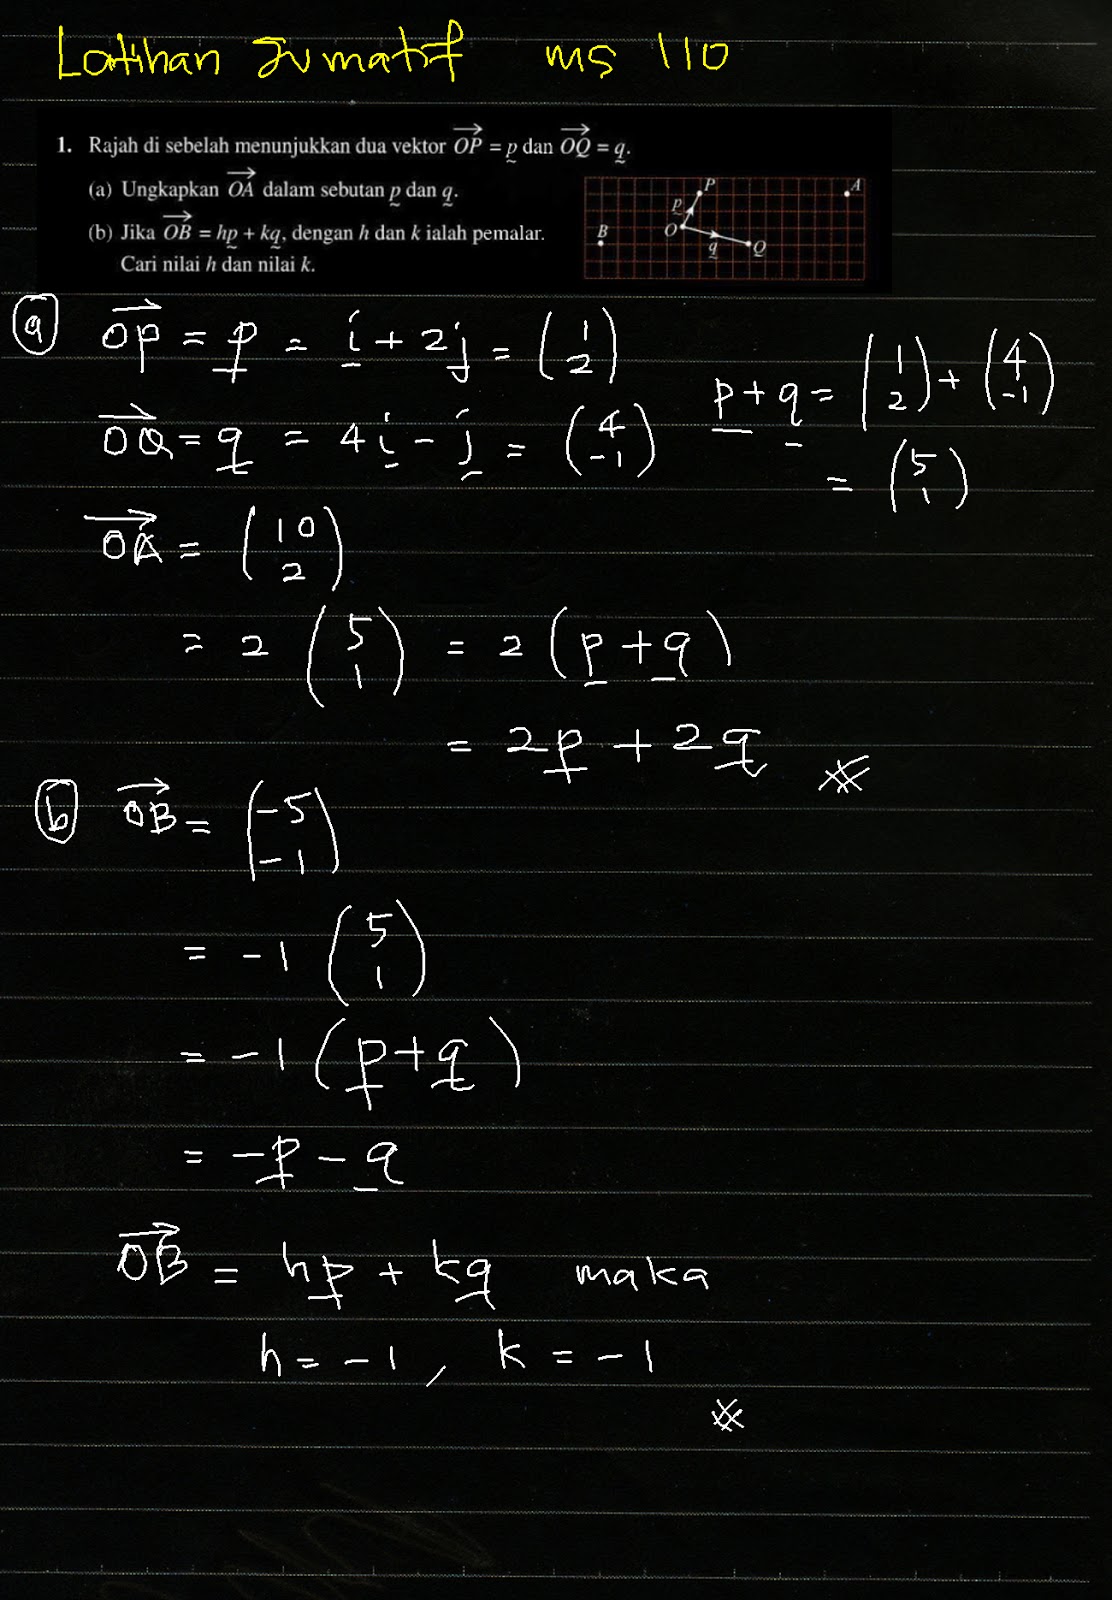 Latihan Sumatif ms 110
1. Rajah di sebelah menunjukkan dua vektor \overrightarrow{OP} = p dan \overrightarrow{OQ} = q.
(a) Ungkapkan \overrightarrow{OA} dalam sebutan p dan q.
(b) Jika \overrightarrow{OB} = hp + kq, dengan h dan k ialah pemalar.
Cari nilai h dan nilai k.
P
A
p
B
O
q
Q
(a) \overrightarrow{OP} = p = i + 2j = (1 2)
\overrightarrow{OQ} = q = 4i - j = (4 -1)
p + q = (1 2) + (4 -1)
= (5 1)
\overrightarrow{OA} = (10 2)
= 2 (5 1) = 2 (p + q)
= 2p + 2q
(b) \overrightarrow{OB} = (-5 -1)
= -1 (5 1)
= -1 (p + q)
= -p - q
\overrightarrow{OB} = hp + kq maka
h = -1 , k = -1